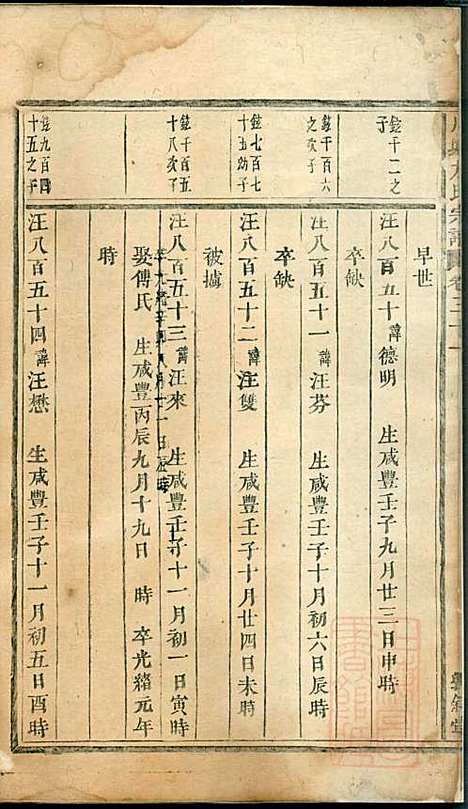 早世
鉉千二之子
汪八百五十諱德明 生咸豐壬子九月廿三日申時
卒缺
鉉千百六之次子
汪八百五十一諱汪芬 生咸豐壬子十月初六日辰時
卒缺
鉉七百七十五幼子
汪八百五十二諱汪雙 生咸豐壬子十月廿四日未時
被擄
鉉千百五十八次子
汪八百五十三諱汪來 生咸豐壬子十一月初一日寅時
娶傅氏 生咸豐丙辰九月十九日 時 卒光緒元年
時
鉉九百四十五之子
汪八百五十四諱汪懋 生咸豐壬子十一月初五日酉時